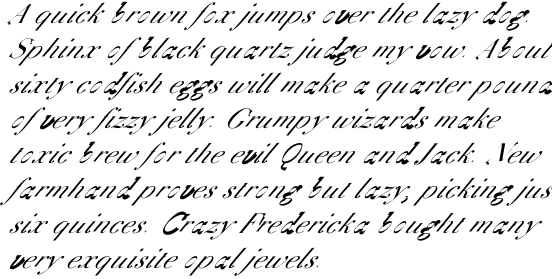 A quick brown fox jumps over the lazy dog.
Sphinx of black quartz, judge my vow. About
sixty codfish eggs will make a quarter pound
of very fizzy jelly. Grumpy wizards make
toxic brew for the evil Queen and Jack. New
farmhand proves strong but lazy, picking jus
six quinces. Crazy Fredericka bought many
very exquisite opal jewels.